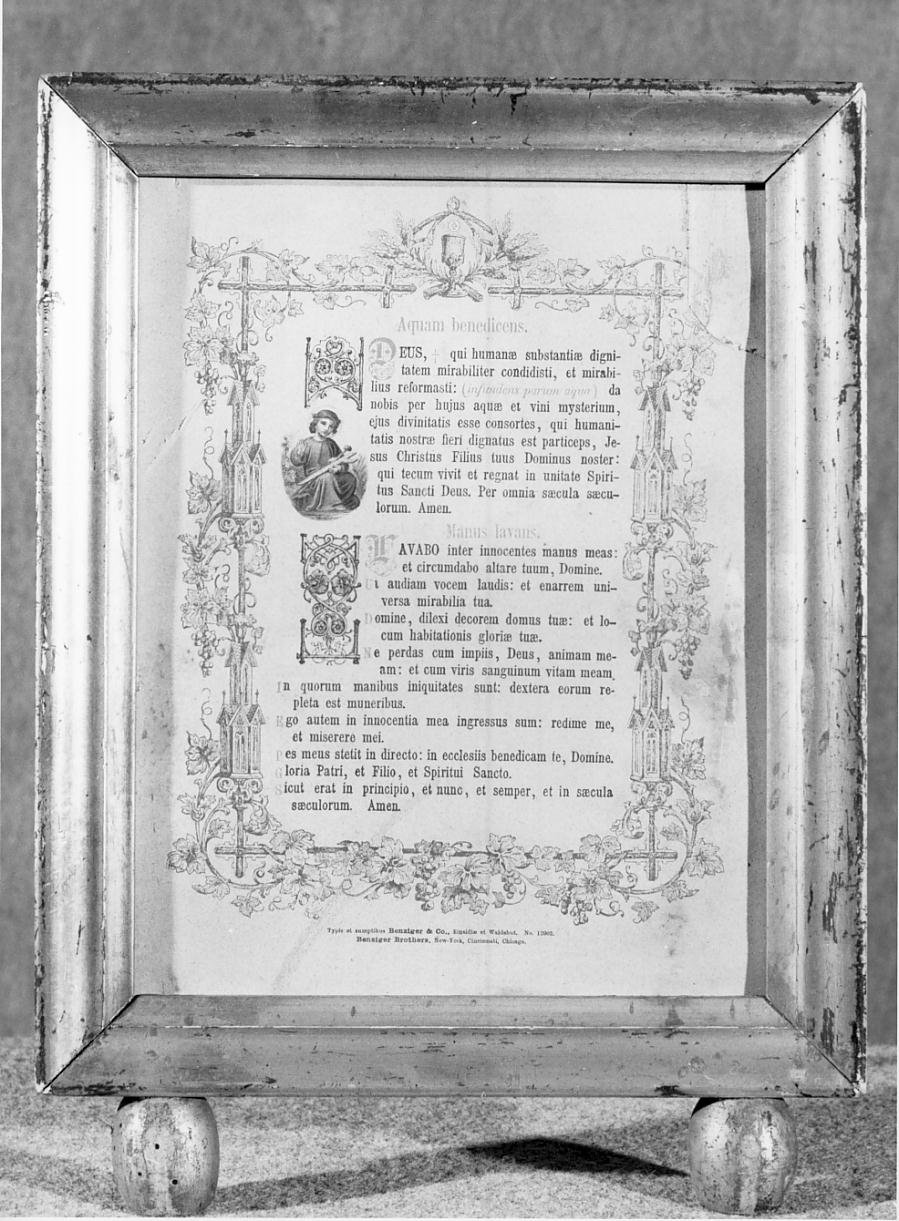 Aquam benedicens.
DEUS, † qui humanæ substantiæ digni-
tatem mirabiliter condidisti, et mirabi-
lius reformasti: (infundens parum aquæ) da
nobis per hujus aquæ et vini mysterium,
ejus divinitatis esse consortes, qui humani-
tatis nostræ fieri dignatus est particeps, Je-
sus Christus Filius tuus Dominus noster:
qui tecum vivit et regnat in unitate Spiri-
tus Sancti Deus. Per omnia sæcula sæcu-
lorum. Amen.
Manus lavans.
LAVABO inter innocentes manus meas:
et circumdabo altare tuum, Domine.
Ut audiam vocem laudis: et enarrem uni-
versa mirabilia tua.
Domine, dilexi decorem domus tuæ: et lo-
cum habitationis gloriæ tuæ.
Ne perdas cum impiis, Deus, animam me-
am: et cum viris sanguinum vitam meam.
In quorum manibus iniquitates sunt: dextera eorum re-
pleta est muneribus.
Ego autem in innocentia mea ingressus sum: redime me,
et miserere mei.
Pes meus stetit in directo: in ecclesiis benedicam te, Domine.
Gloria Patri, et Filio, et Spiritui Sancto.
Sicut erat in principio, et nunc, et semper, et in sæcula
sæculorum. Amen.
Typis et sumptibus Benziger & Co., Einsidlæ et Waldshut. No. 12902.
Benziger Brothers, New-York, Cincinnati, Chicago.